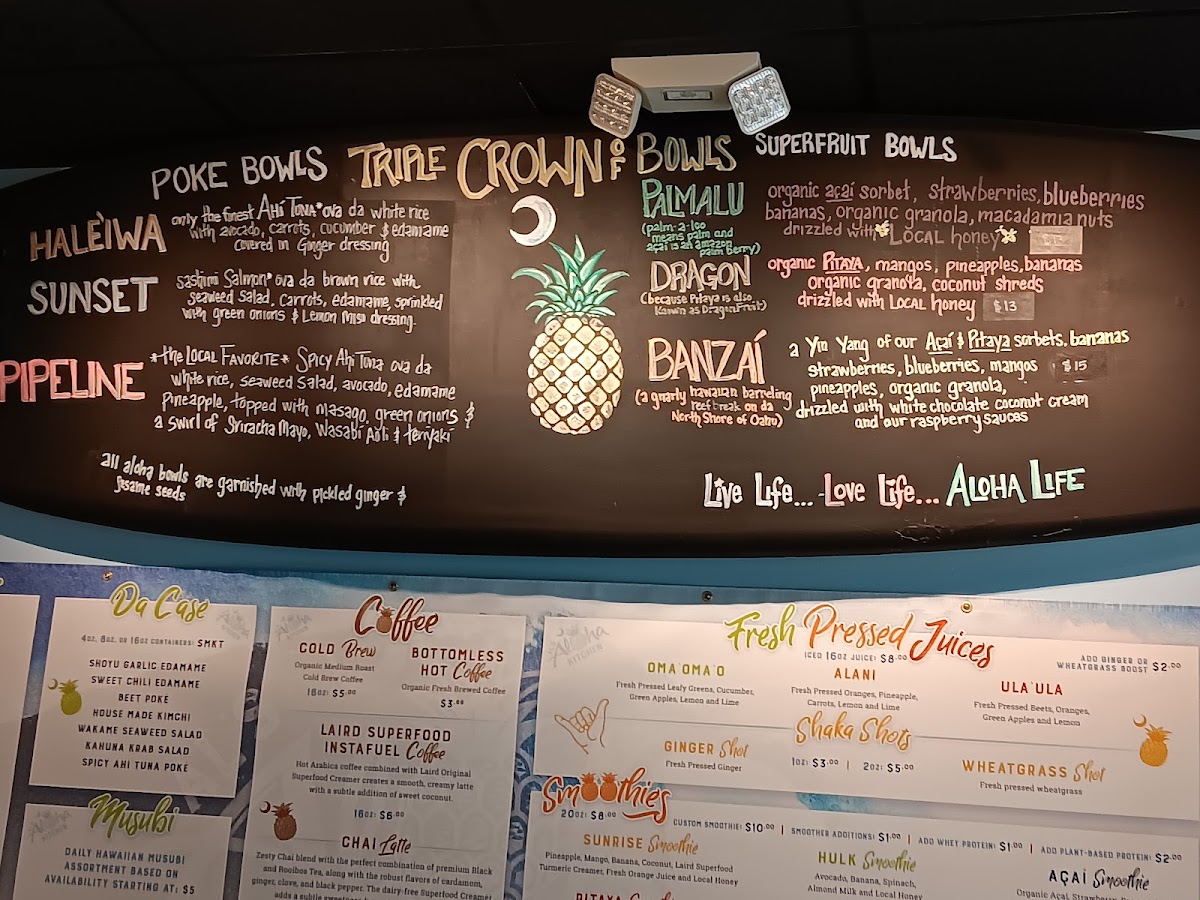 POKE BOWLS
TRIPLE CROWN OF BOWLS
SUPERFRUIT BOWLS
HALÈIWA
only the finest AHI TUNA* ova da white rice
with avocado, carrots, cucumber & edamame
covered in Ginger dressing
SUNSET
sashimi Salmon* ova da brown rice with
seaweed Salad, carrots, edamame, sprinkled
with green onions & Lemon Miso dressing.
PIPELINE
*the LOCAL FAVORITE* SPICY Ahi Tuna ova da
white rice, seaweed salad, avocado, edamame
Pineapple, topped with masago, green onions &
a swirl of Sriracha Mayo, Wasabi Aoli & teriyaki
all aloha bowls are garnished with pickled ginger &
sesame seeds
PALMALU
(palm-a-loo
means palm and
açaí is an amazon
palm berry)
organic açaí sorbet, strawberries, blueberries
bananas, organic granola, macadamia nuts
drizzled with LOCAL honey
DRAGON
(because Pitaya is also
known as DragonFruit)
organic PITAYA, mangos, pineapples, bananas
organic granola, coconut shreds
drizzled with LOCAL honey $13
BANZAÍ
(a gnarly hawaiian barreling
reef break on da
North Shore of Oahu)
a Yin Yang of our Açaí & Pitaya sorbets, bananas
strawberries, blueberries, mangos $15
pineapples, organic granola,
drizzled with white chocolate coconut cream
and our raspberry sauces
Live Life... Love Life... ALOHA LIFE
Da Case
4OZ, 8OZ, OR 16OZ CONTAINERS: $MKT
SHOYU GARLIC EDAMAME
SWEET CHILI EDAMAME
BEET POKE
HOUSE MADE KIMCHI
WAKAME SEAWEED SALAD
KAHUNA KRAB SALAD
SPICY AHI TUNA POKE
Musubi
DAILY HAWAIIAN MUSUBI
ASSORTMENT BASED ON
AVAILABILITY STARTING AT: $5
Coffee
COLD Brew
Organic Medium Roast
Cold Brew Coffee
16OZ: $5.00
BOTTOMLESS
HOT Coffee
Organic Fresh Brewed Coffee
$3.00
LAIRD SUPERFOOD
INSTAFUEL Coffee
Hot Arabica coffee combined with Laird Original
Superfood Creamer creates a smooth, creamy latte
with a subtle addition of sweet coconut.
16OZ: $6.00
CHAI Latte
Zesty Chai blend with the perfect combination of premium Black
and Rooibos Tea, along with the robust flavors of cardamom,
ginger, clove, and black pepper. The dairy-free Superfood Creamer
adds a subtle
Aloha
KITCHEN
Fresh Pressed Juices
ICED 16OZ JUICE: $8.00
ADD GINGER OR
WHEATGRASS BOOST $2.00
OMA`OMA`O
Fresh Pressed Leafy Greens, Cucumber,
Green Apples, Lemon and Lime
ALANI
Fresh Pressed Oranges, Pineapple,
Carrots, Lemon and Lime
ULA`ULA
Fresh Pressed Beets, Oranges,
Green Apples and Lemon
Shaka Shots
1OZ: $3.00 | 2OZ: $5.00
GINGER Shot
Fresh Pressed Ginger
WHEATGRASS Shot
Fresh pressed wheatgrass
Smoothies
20OZ: $8.00
CUSTOM SMOOTHIE: $10.00 | SMOOTHER ADDITIONS: $1.00 | ADD WHEY PROTEIN: $1.00 | ADD PLANT-BASED PROTEIN: $2.00
SUNRISE Smoothie
Pineapple, Mango, Banana, Coconut, Laird Superfood
Turmeric Creamer, Fresh Orange Juice and Local Honey
HULK Smoothie
Avocado, Banana, Spinach,
Almond Milk and Local Honey
AÇAÍ Smoothie
Organic Açaí, Strawberry,
PITAYA